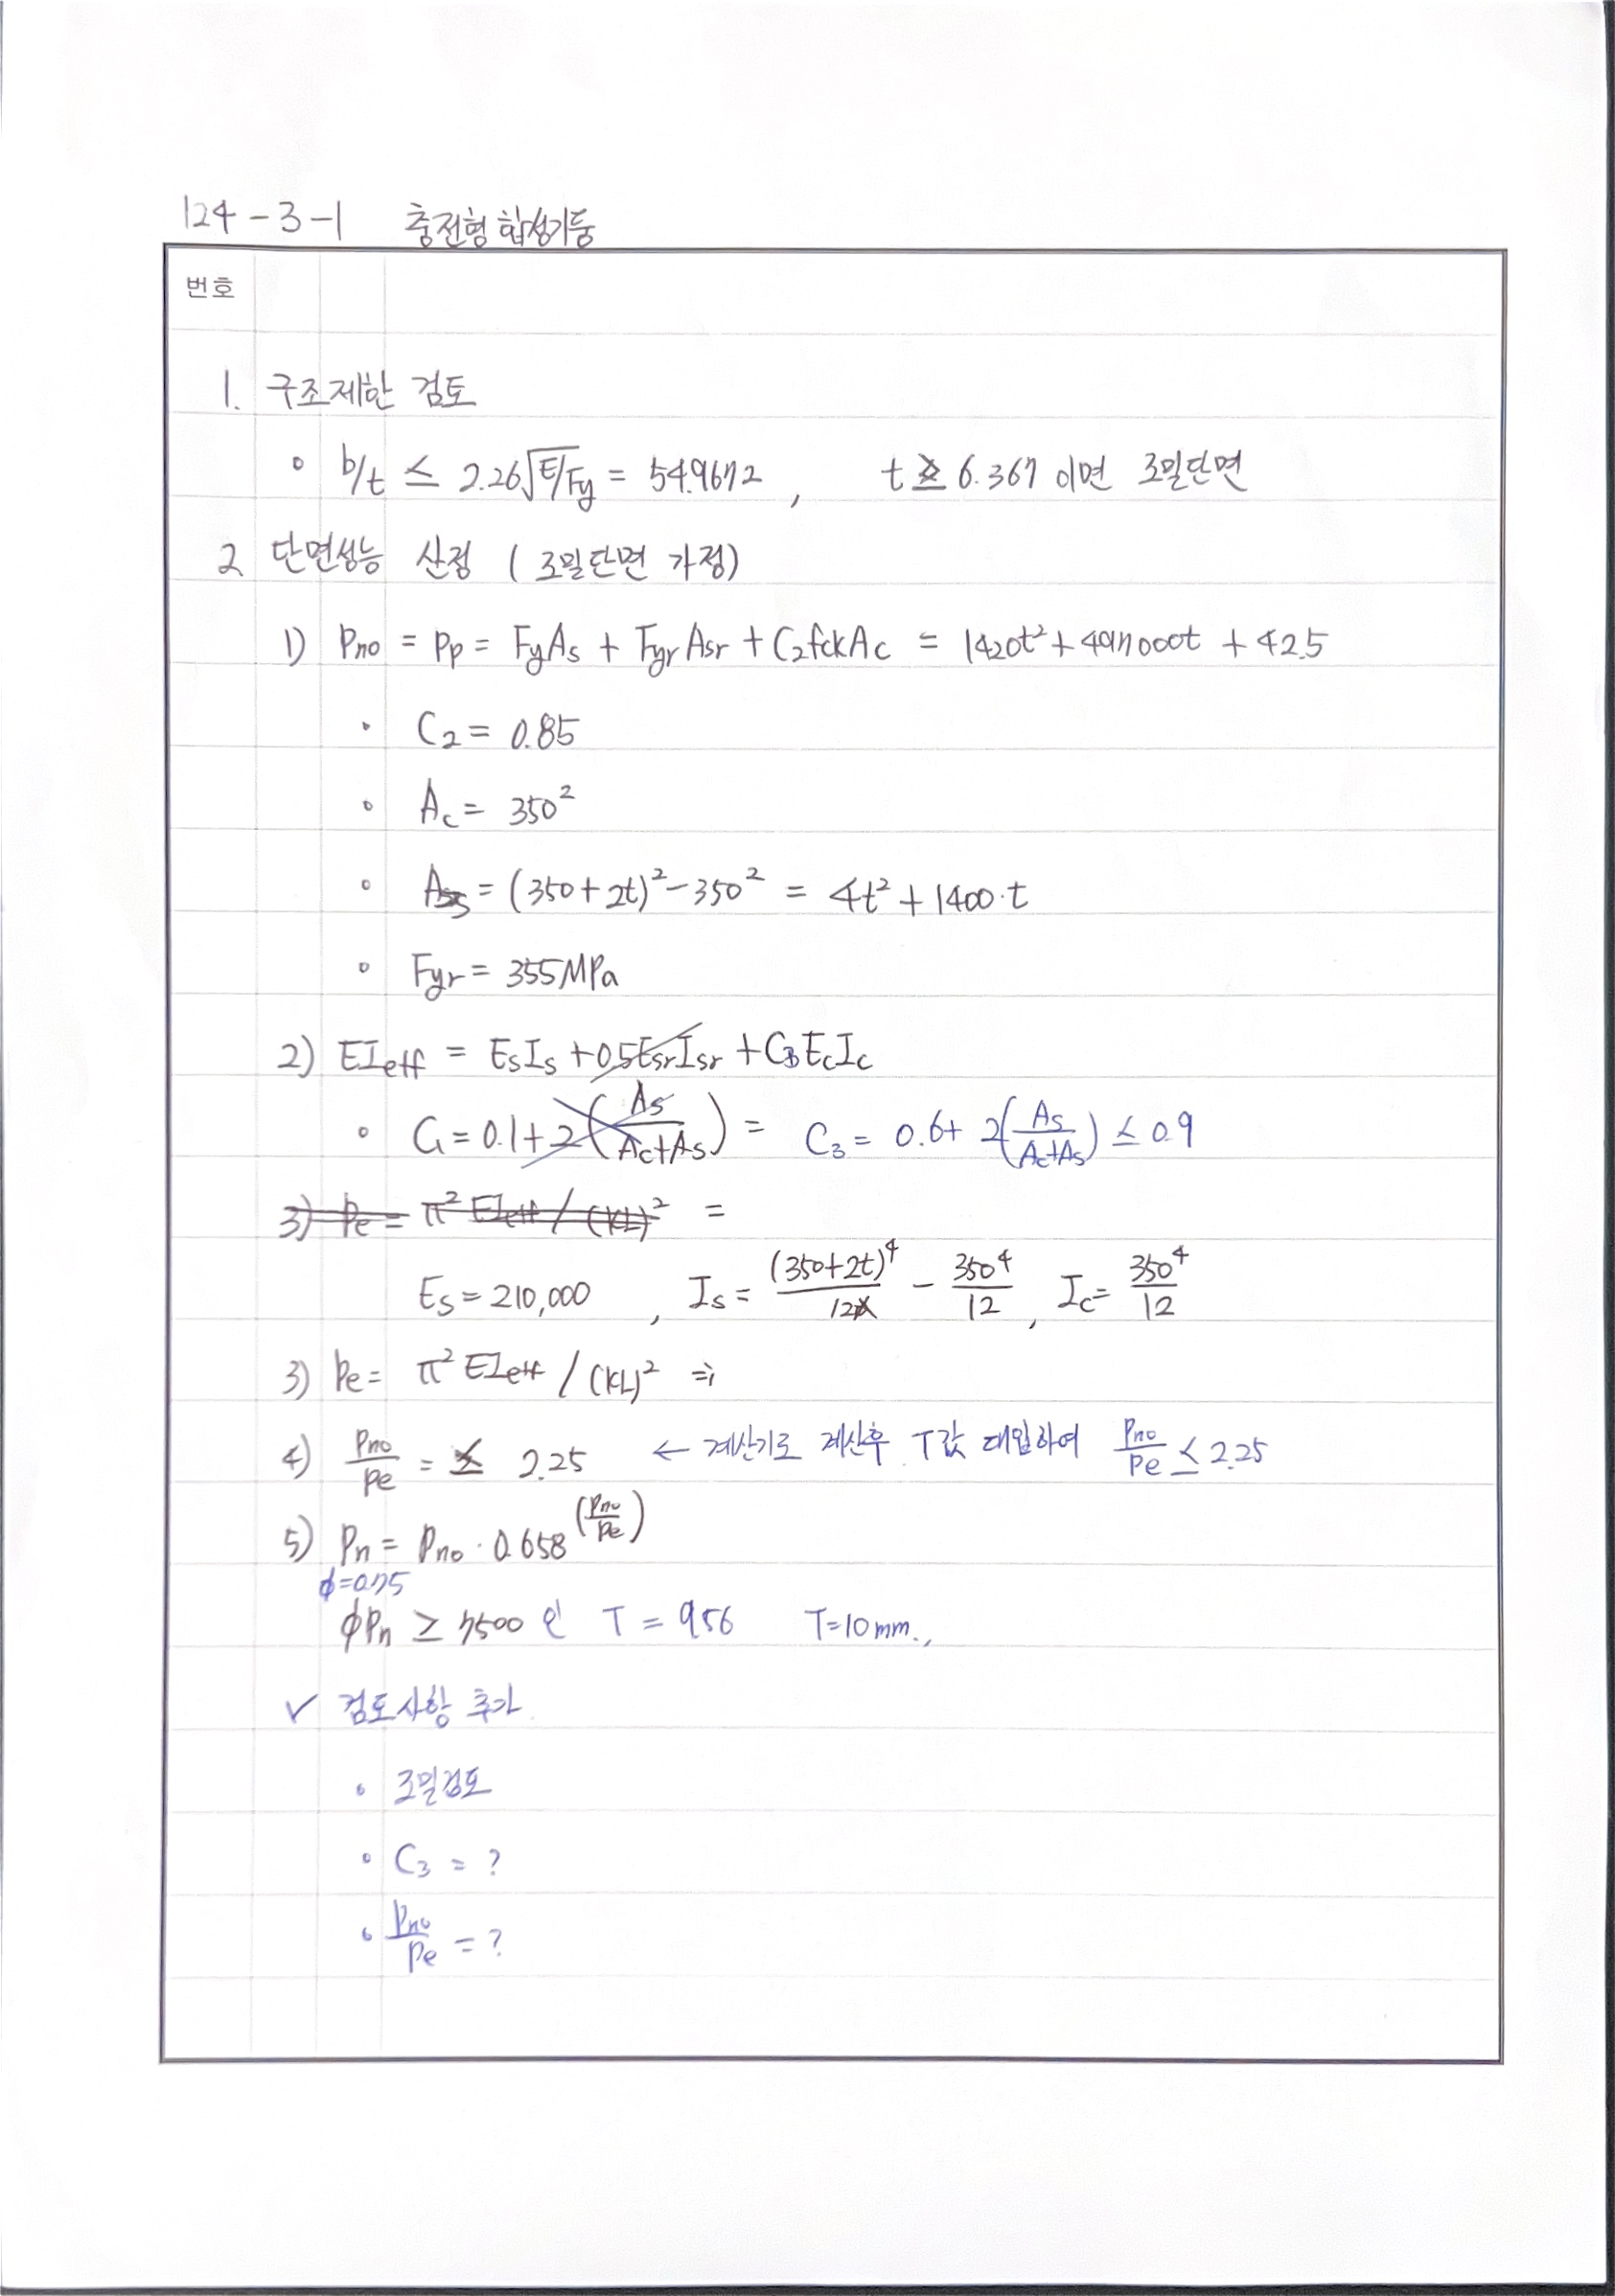 124-3-1 충전형 합성기둥
번호
1. 구조제한 검토
◦ b/t ≤ 2.26√E/Fy = 54.9672 , t ≥ 6.367 이면 조밀단면
2 단면성능 산정 ( 조밀단면 가정)
1) Pno = Pp = FyAs + FyrAsr + C2fckAc = 1420t² + 497000t + 42.5
· C2 = 0.85
◦ Ac = 350²
◦ As = (350+2t)² - 350² = 4t² + 1400·t
◦ Fyr = 355MPa
2) EIeff = EsIs + 0.5EsrIsr + C3EcIc
◦ C1 = 0.1 + 2(As/Ac+As) = C3 = 0.6 + 2(As/Ac+As) ≤ 0.9
3) Pe = π² EIeff / (KL)² =
Es = 210,000 , Is = (350+2t)⁴/12 - 350⁴/12 , Ic = 350⁴/12
3) Pe = π² EIeff / (KL)² ⇒
4) Pno/Pe = ≤ 2.25 ← 계산기로 계산후 T값 대입하여 Pno/Pe ≤ 2.25
5) Pn = Pno · 0.658^(Pno/Pe)
ϕ=0.75
ϕPn ≥ 7500 인 T = 9.56 T=10mm.,
✓ 검토사항 추가
◦ 조밀검토
◦ C3 = ?
◦ Pno/Pe = ?